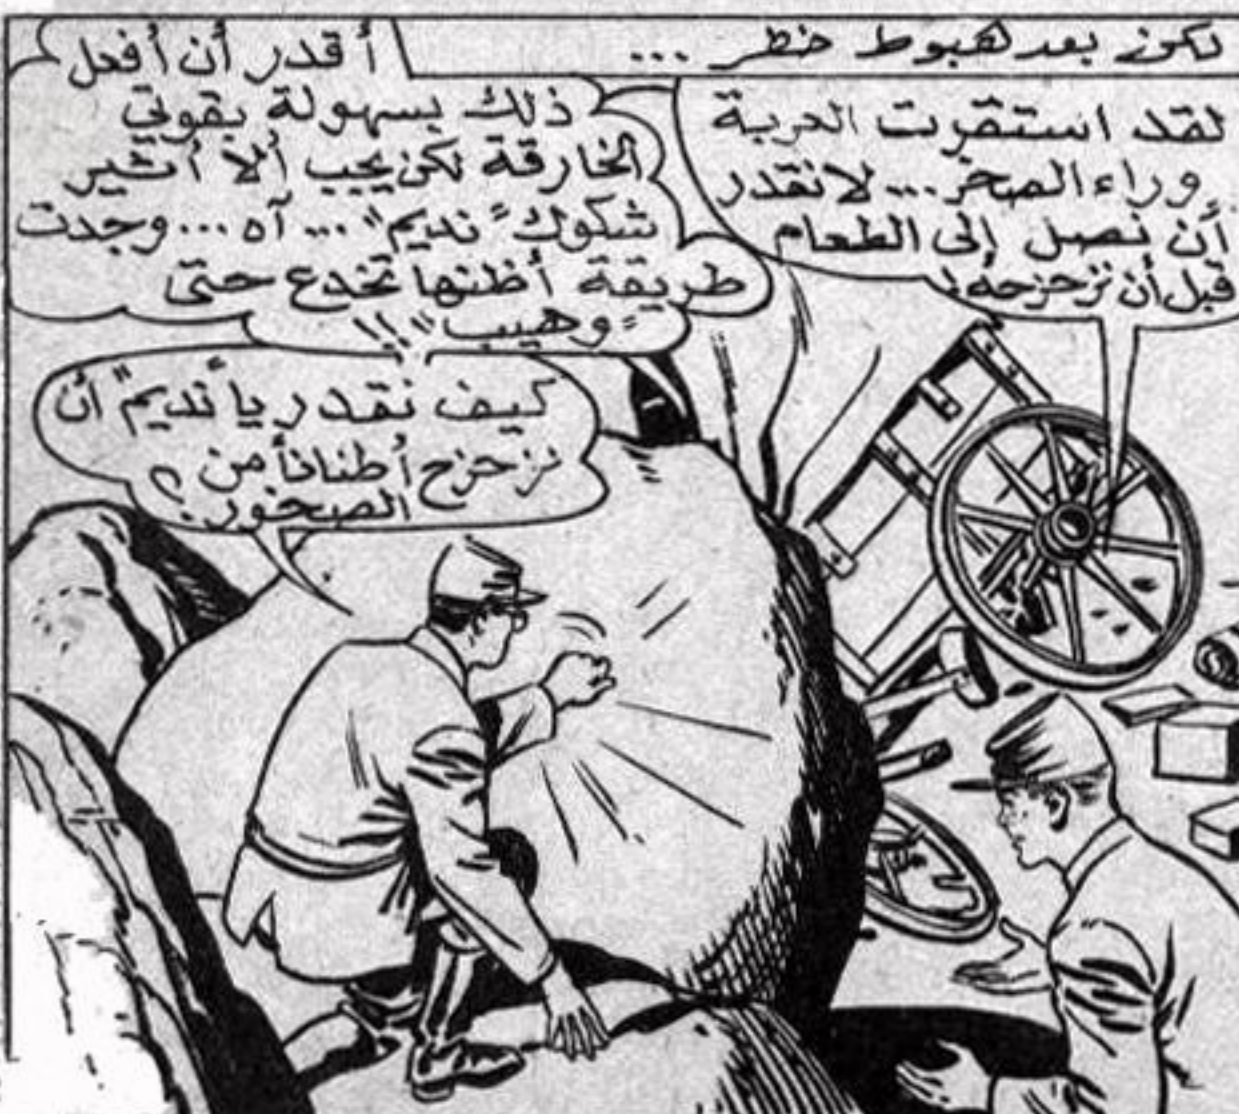 لكن بعد هبوط خطر ...
لقد استقرت العربة
وراء الصخر... لا نقدر
أن نصل إلى الطعام
قبل أن نزحزحه!
أقدر أن أفعل
ذلك بسهولة بقوتي
الخارقة لكن يجب ألا أثير
شكوك "نديم"... آه... وجدت
طريقة أظنها تخدع حتى
"وهيب"!!
كيف نقدر يا "نديم" أن
نزحزح أطناناً من
الصخور؟